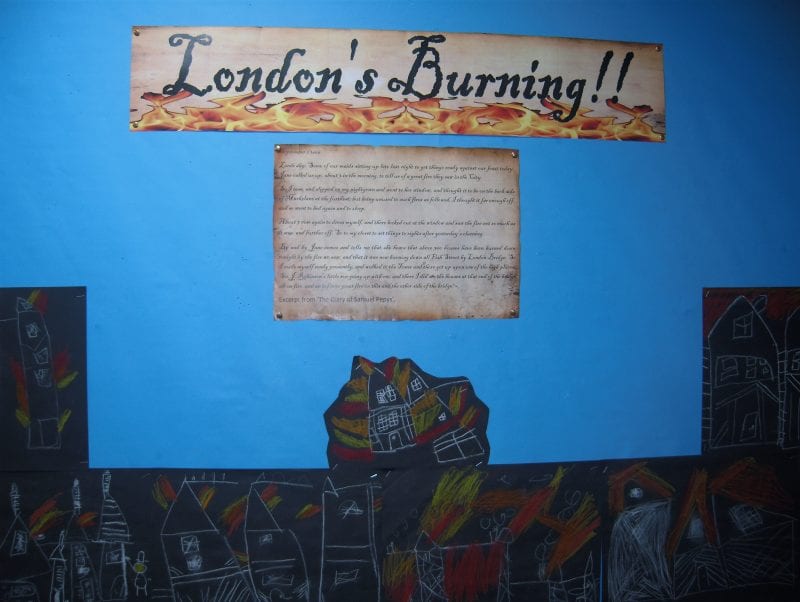 London's Burning!!
Lords day. Some of our maids sitting up late last night to get things ready against our feast today,
Jane called us up, about 3 in the morning, to tell us of a great fire they saw in the City.
So I rose, and slipped on my nightgown and went to her window, and thought it to be on the back side
of Markelane at the furthest; but being unused to such fires as followed, I thought it far enough off,
and so went to bed again and to sleep.
About 7 rose again to dress myself, and there looked out at the window and saw the fire not so much as
it was, and further off. So to my closet to set things to rights after yesterday's cleaning.
By and by Jane comes and tells me that she hears that above 300 houses have been burned down
tonight by the fire we saw, and that it was now burning down all Fish Street by London Bridge. So
I made myself ready presently, and walked to the Tower and there got up upon one of the high places,
Sir J. Robinson's little son going up with me; and there I did see the houses at that end of the bridge
all on fire, and an infinite great fire on this and the other side of the bridge
Excerpt from 'The Diary of Samuel Pepys'.